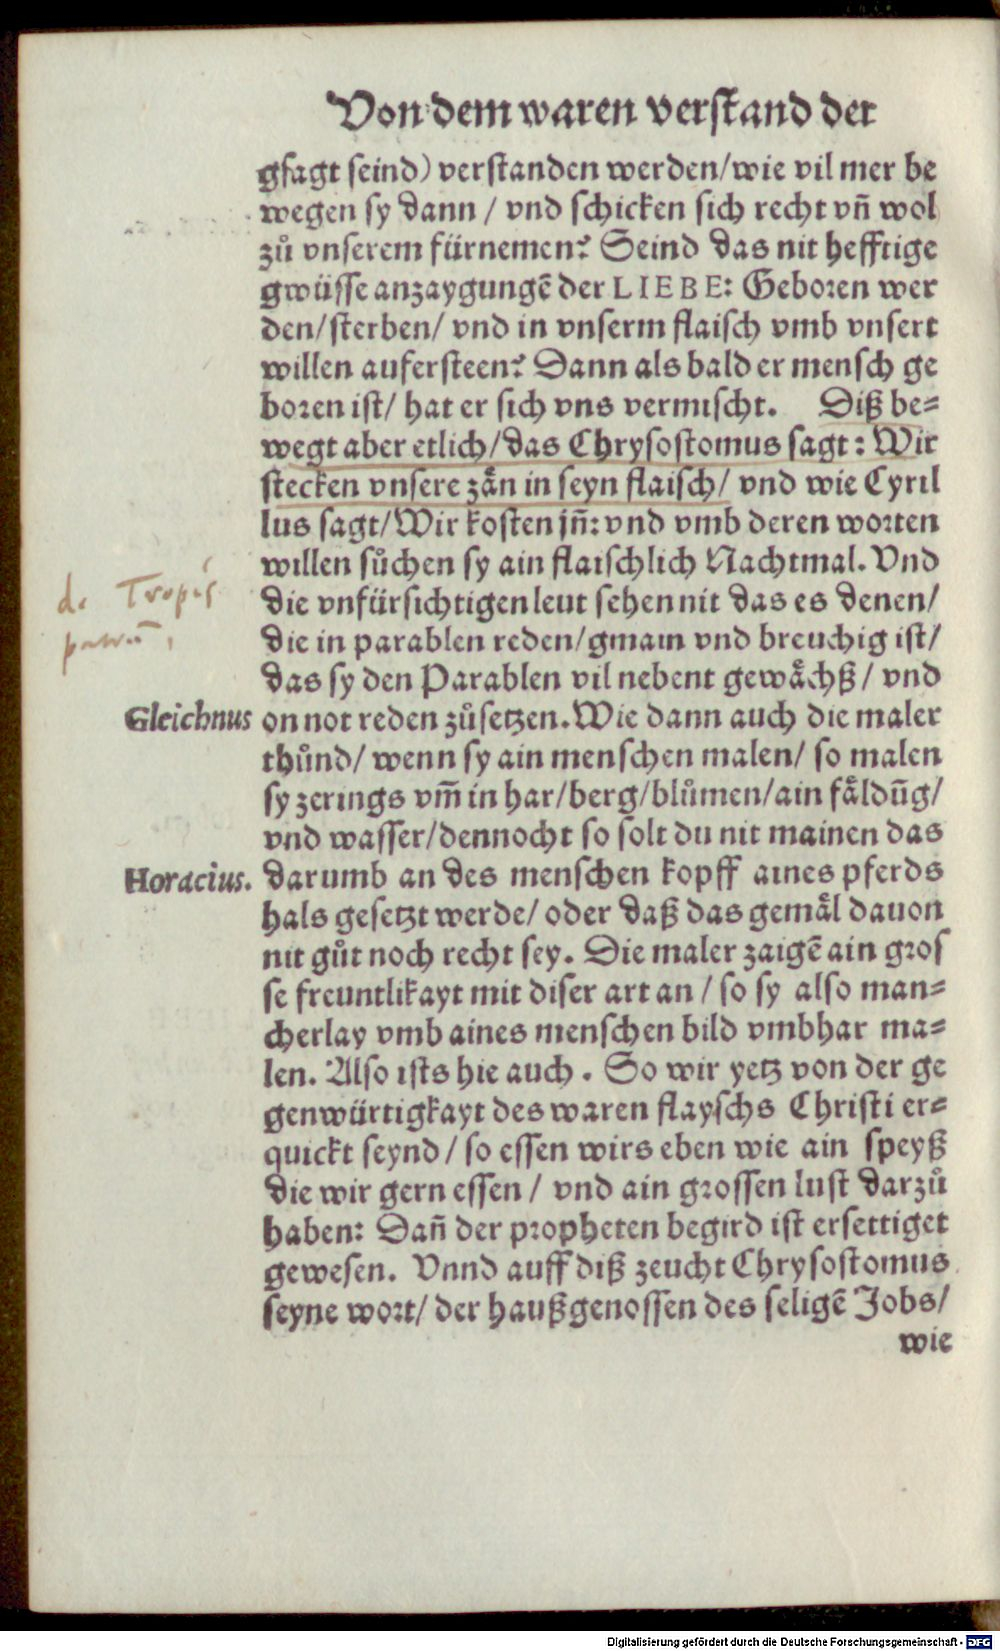 Von dem waren verstand der
gsagt seind) verstanden werden/wie vil mer be
wegen sy dann / vnd schicken sich recht vñ wol
zů vnserem fürnemen? Seind das nit hefftige
gwüsse anzaygungẽ der LIEBE: Geboren wer
den/sterben/ vnd in vnserm flaisch vmb vnsert
willen aufersteen? Dann als bald er mensch ge
boren ist/ hat er sich vns vermischt. Diß be=
wegt aber etlich/das Chrysostomus sagt: Wir
stecken vnsere zän in seyn flaisch/ vnd wie Cyril
lus sagt/Wir kosten jñ: vnd vmb deren worten
willen sůchen sy ain flaischlich Nachtmal. Vnd
de Tropis
die vnfürsichtigen leut sehen nit das es denen/
die in parablen reden/gmain vnd breuchig ist/
das sy den Parablen vil nebent gewächß/ vnd
Gleichnus on not reden zůsetzen. Wie dann auch die maler
thůnd/ wenn sy ain menschen malen/ so malen
sy zerings vm̃ in har/berg/blůmen/ain fäldũg/
vnd wasser/dennocht so solt du nit mainen das
Horacius. darumb an des menschen kopff aines pferds
hals gesetzt werde/ oder daß das gemäl dauon
nit gůt noch recht sey. Die maler zaigẽ ain gros
se freuntlikayt mit diser art an / so sy also man=
cherlay vmb aines menschen bild vmbhar ma=
len. Also ists hie auch. So wir yetz von der ge
genwürtigkayt des waren flayschs Christi er=
quickt seynd/ so essen wirs eben wie ain speyß
die wir gern essen/ vnd ain grossen lust darzů
haben: Dañ der propheten begird ist ersettiget
gewesen. Vnnd auff diß zeucht Chrysostomus
seyne wort/ der haußgenossen des seligẽ Jobs/
wie
Digitalisierung gefördert durch die Deutsche Forschungsgemeinschaft - DFG